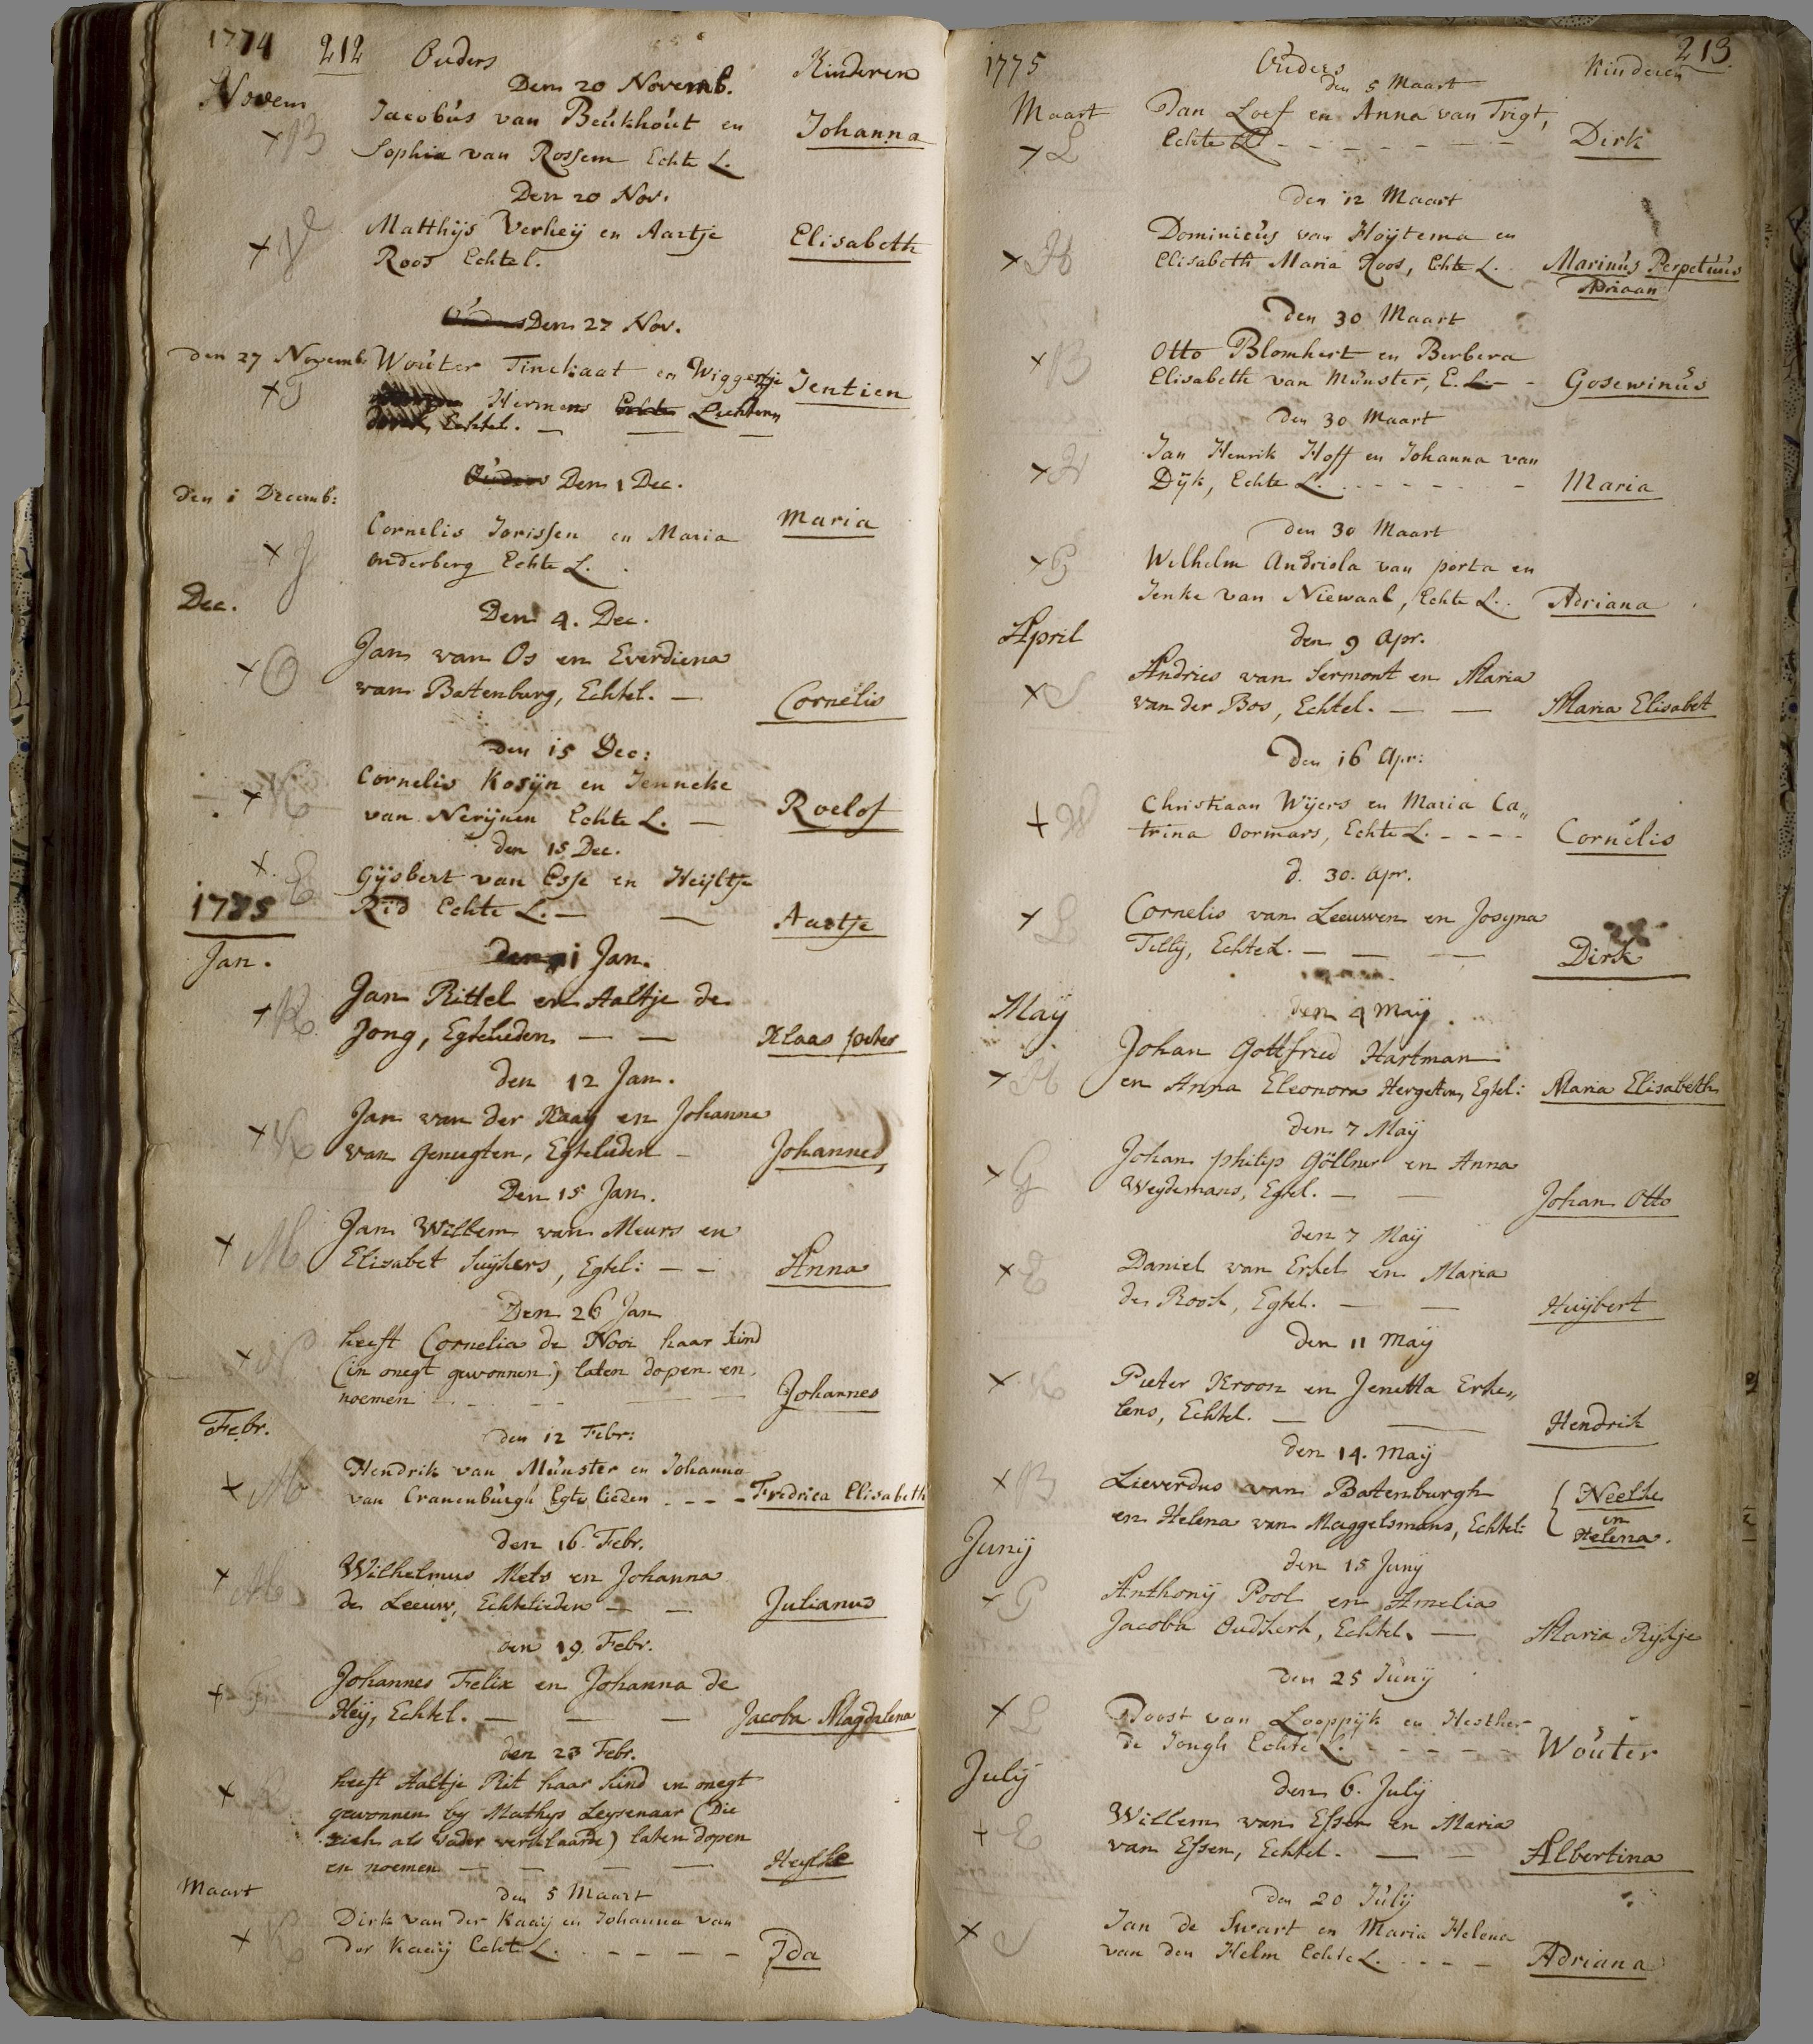 1774 212 Ouders Kinderen
Den 20 Novemb.
Novem Jacobus van Beukhout en
Sophia van Rossem Echte L. Johanna
Den 20 Nov.
Matthijs Verheij en Aartje
Roos Echtel. Elisabeth
Den 27 Nov.
Den 27 Novemb. Wouter Tinekaat en Wiggertje Jentien
Hermens Echte Lichten
Echtel. — — —
Ouders Den 1 Dec.
den 1 Decemb:
Cornelis Jorissen en Maria Maria
onderberg Echte L.
Dec.
Den 4. Dec.
Jan van Os en Everdiena
van Batenburg, Echtel. — Cornelis
den 15 Dec:
Cornelis Kosijn en Jenneke
van Nerijnen Echte L. — Roelof
den 15 Dec.
Gijsbert van Esse en Heijltje
1775 Rid Echte L. — — Aartje
Jan. den 1 Jan.
Jan Rittel en Aaltje de
Jong, Egtelieden — — Klaas peter
den 12 Jan.
Jan van der Kaaij en Johanna
van Genugten, Egtelieden — Johannes
Den 15 Jan.
Jan Willem van Meurs en
Elizabet Suijkers, Egtel: — — Anna
Den 26 Jan
heeft Cornelia de Nooi haar kind
(in onegt gewonnen) laten dopen en
noemen — — Johannes
Febr.
den 12 Febr:
Hendrik van Münster en Johanna
van Cranenbürgh Egte lieden - - - - Fredrica Elisabeth
den 16. Febr.
Wilhelmus Mets en Johanna
de Leeuw, Echtelieden — — Julianus
den 19. Febr.
Johannes Felix en Johanna de
Heij, Echtel. — — — Jacoba Magdalena
den 23 Febr.
heeft Aaltje Rit haar kind in onegt
gewonnen by Mathys Leysenaar (Die
zich als vader verklaarde) laten dopen
en noemen — — — — Heyltje
Maart den 5 Maart
Dirk van der Kaaij en Johanna van
der Kaaij Echte L. - - - - - Ida
1775 Ouders Kinderen 213.
den 5 Maart
Maart Jan Loef en Anna van Trigt,
Echte L - - - - - - - Dirk
den 12 Maart
Dominicus van Hoijtema en
Elisabeth Maria Roos, Echte L. Marinus Perpetuus
Adriaan
Den 30 Maart
Otto Blomhert en Berbera
Elisabeth van Münster, E. L. — - Gosewinus
den 30 Maart
Jan Henrik Hoff en Johanna van
Dijk, Echte L. - - - - - - Maria
den 30 Maart
Wilhelm Andriola van porta en
Jenke van Niewaal, Echte L. Adriana
April den 9 Apr.
Andries van Sermont en Maria
van der Bos, Echtel. — — Maria Elisabet
Den 16 Apr:
Christiaan Wijers en Maria Ca„
trina Oormars, Echte L. - - - - Cornelis
d. 30. Apr.
Cornelis van Leeuwen en Josyna
Tilly, Echte L. — — — Dirk
Maÿ den 4 Maÿ.
Johan Gottfried Hartman
en Anna Eleonora Hergeton, Egtel: Maria Elisabeth
den 7 Maÿ
Johan philip Göllner en Anna
Weydemans, Egtel. — — Johan Otto
den 7 Maÿ
Daniel van Erkel en Maria
de Roock, Egtel. — — Huijbert
Den 11 Maÿ
Pieter Kroon en Jenetta Erke„
lens, Echtel. — — Hendrik
den 14. Maÿ
Lieverdus van Batenburgh { Neeltke
en
en Helena van Maggelsmans, Echtel: Helena.
Junij den 15 Junÿ
Anthonij Pool en Amelia
Jacoba Oudkerk, Echtel. — Maria Rijkje
den 25 Junij
Joost van Looppijk en Hesther
de Jongh Echte L. - - - - - Wouter
Julij den 6. Julÿ
Willem van Essen en Maria
van Essen, Echtel. — — Albertina
den 20 Julij
Jan de Swart en Maria Helena
van den Helm Echte L. - - - - Adriana